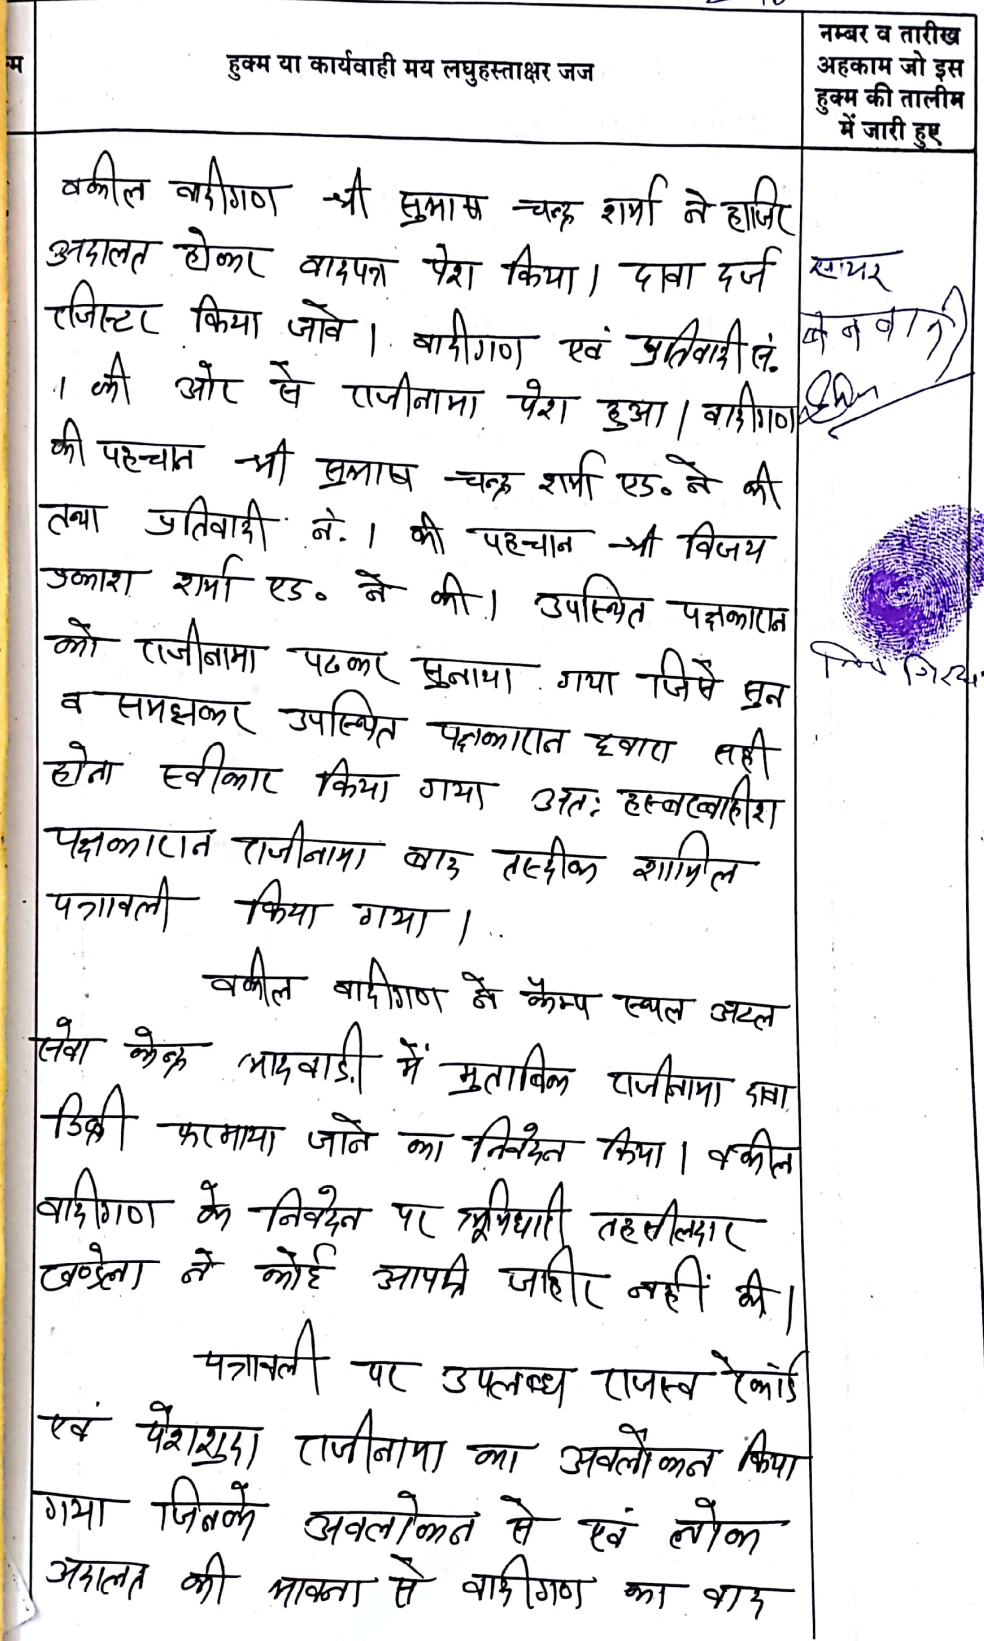 म
हुक्म या कार्यवाही मय लघुहस्ताक्षर जज
नम्बर व तारीख
अहकाम जो इस
हुक्म की तालीम
में जारी हुए
वकील वादीगण श्री सुभाष चन्द्र शर्मा ने हाजिर
अदालत होकर वादपत्र पेश किया। दावा दर्ज
रजिस्टर किया जावे। वादीगण एवं प्रतिवादी सं.
1 की ओर से राजीनामा पेश हुआ। वादीगण
की पहचान श्री सुभाष चन्द्र शर्मा एड० ने की
तथा प्रतिवादी नं. 1 की पहचान श्री विजय
प्रकाश शर्मा एड० ने की। उपस्थित पक्षकारान
को राजीनामा पढकर सुनाया गया जिसे सुन
व समझकर उपस्थित पक्षकारान द्वारा सही
होना स्वीकार किया गया अतः हस्बख्वाहिश
पक्षकारान राजीनामा बाद तस्दीक शामिल
पत्रावली किया गया।
वकील वादीगण ने कैम्प स्थल अटल
सेवा केन्द्र भादवाडी में मुताबिक राजीनामा दावा
डिक्री फरमाया जाने का निवेदन किया। वकील
वादीगण के निवेदन पर भूमिधारी तहसीलदार
खण्डेला ने कोई आपत्ति जाहीर नहीं की।
पत्रावली पर उपलब्ध राजस्व रेकॉर्ड
एवं पेशशुदा राजीनामा का अवलोकन किया
गया जिनके अवलोकन से एवं लोक
अदालत की भावना से वादीगण का वाद
सायर